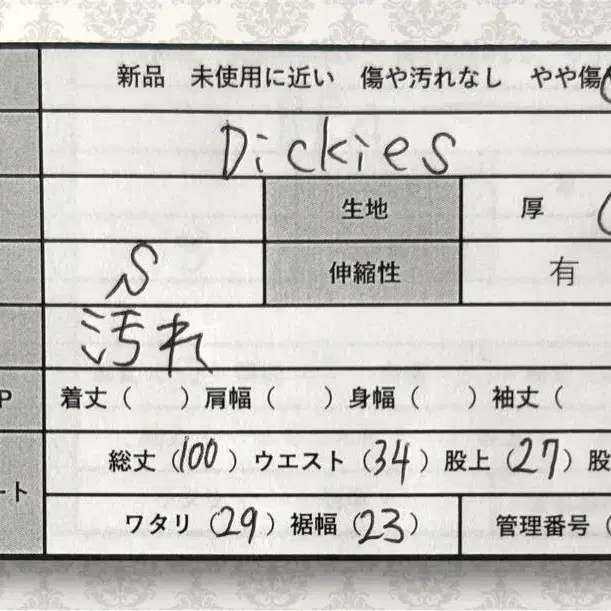 新品 未使用に近い 傷や汚れなし やや傷
Dickies
生地 厚
S 伸縮性 有
汚れ
P 着丈( )肩幅( )身幅( )袖丈(
総丈(100)ウエスト(34)股上(27)股
ート
ワタリ(29)裾幅(23) 管理番号(